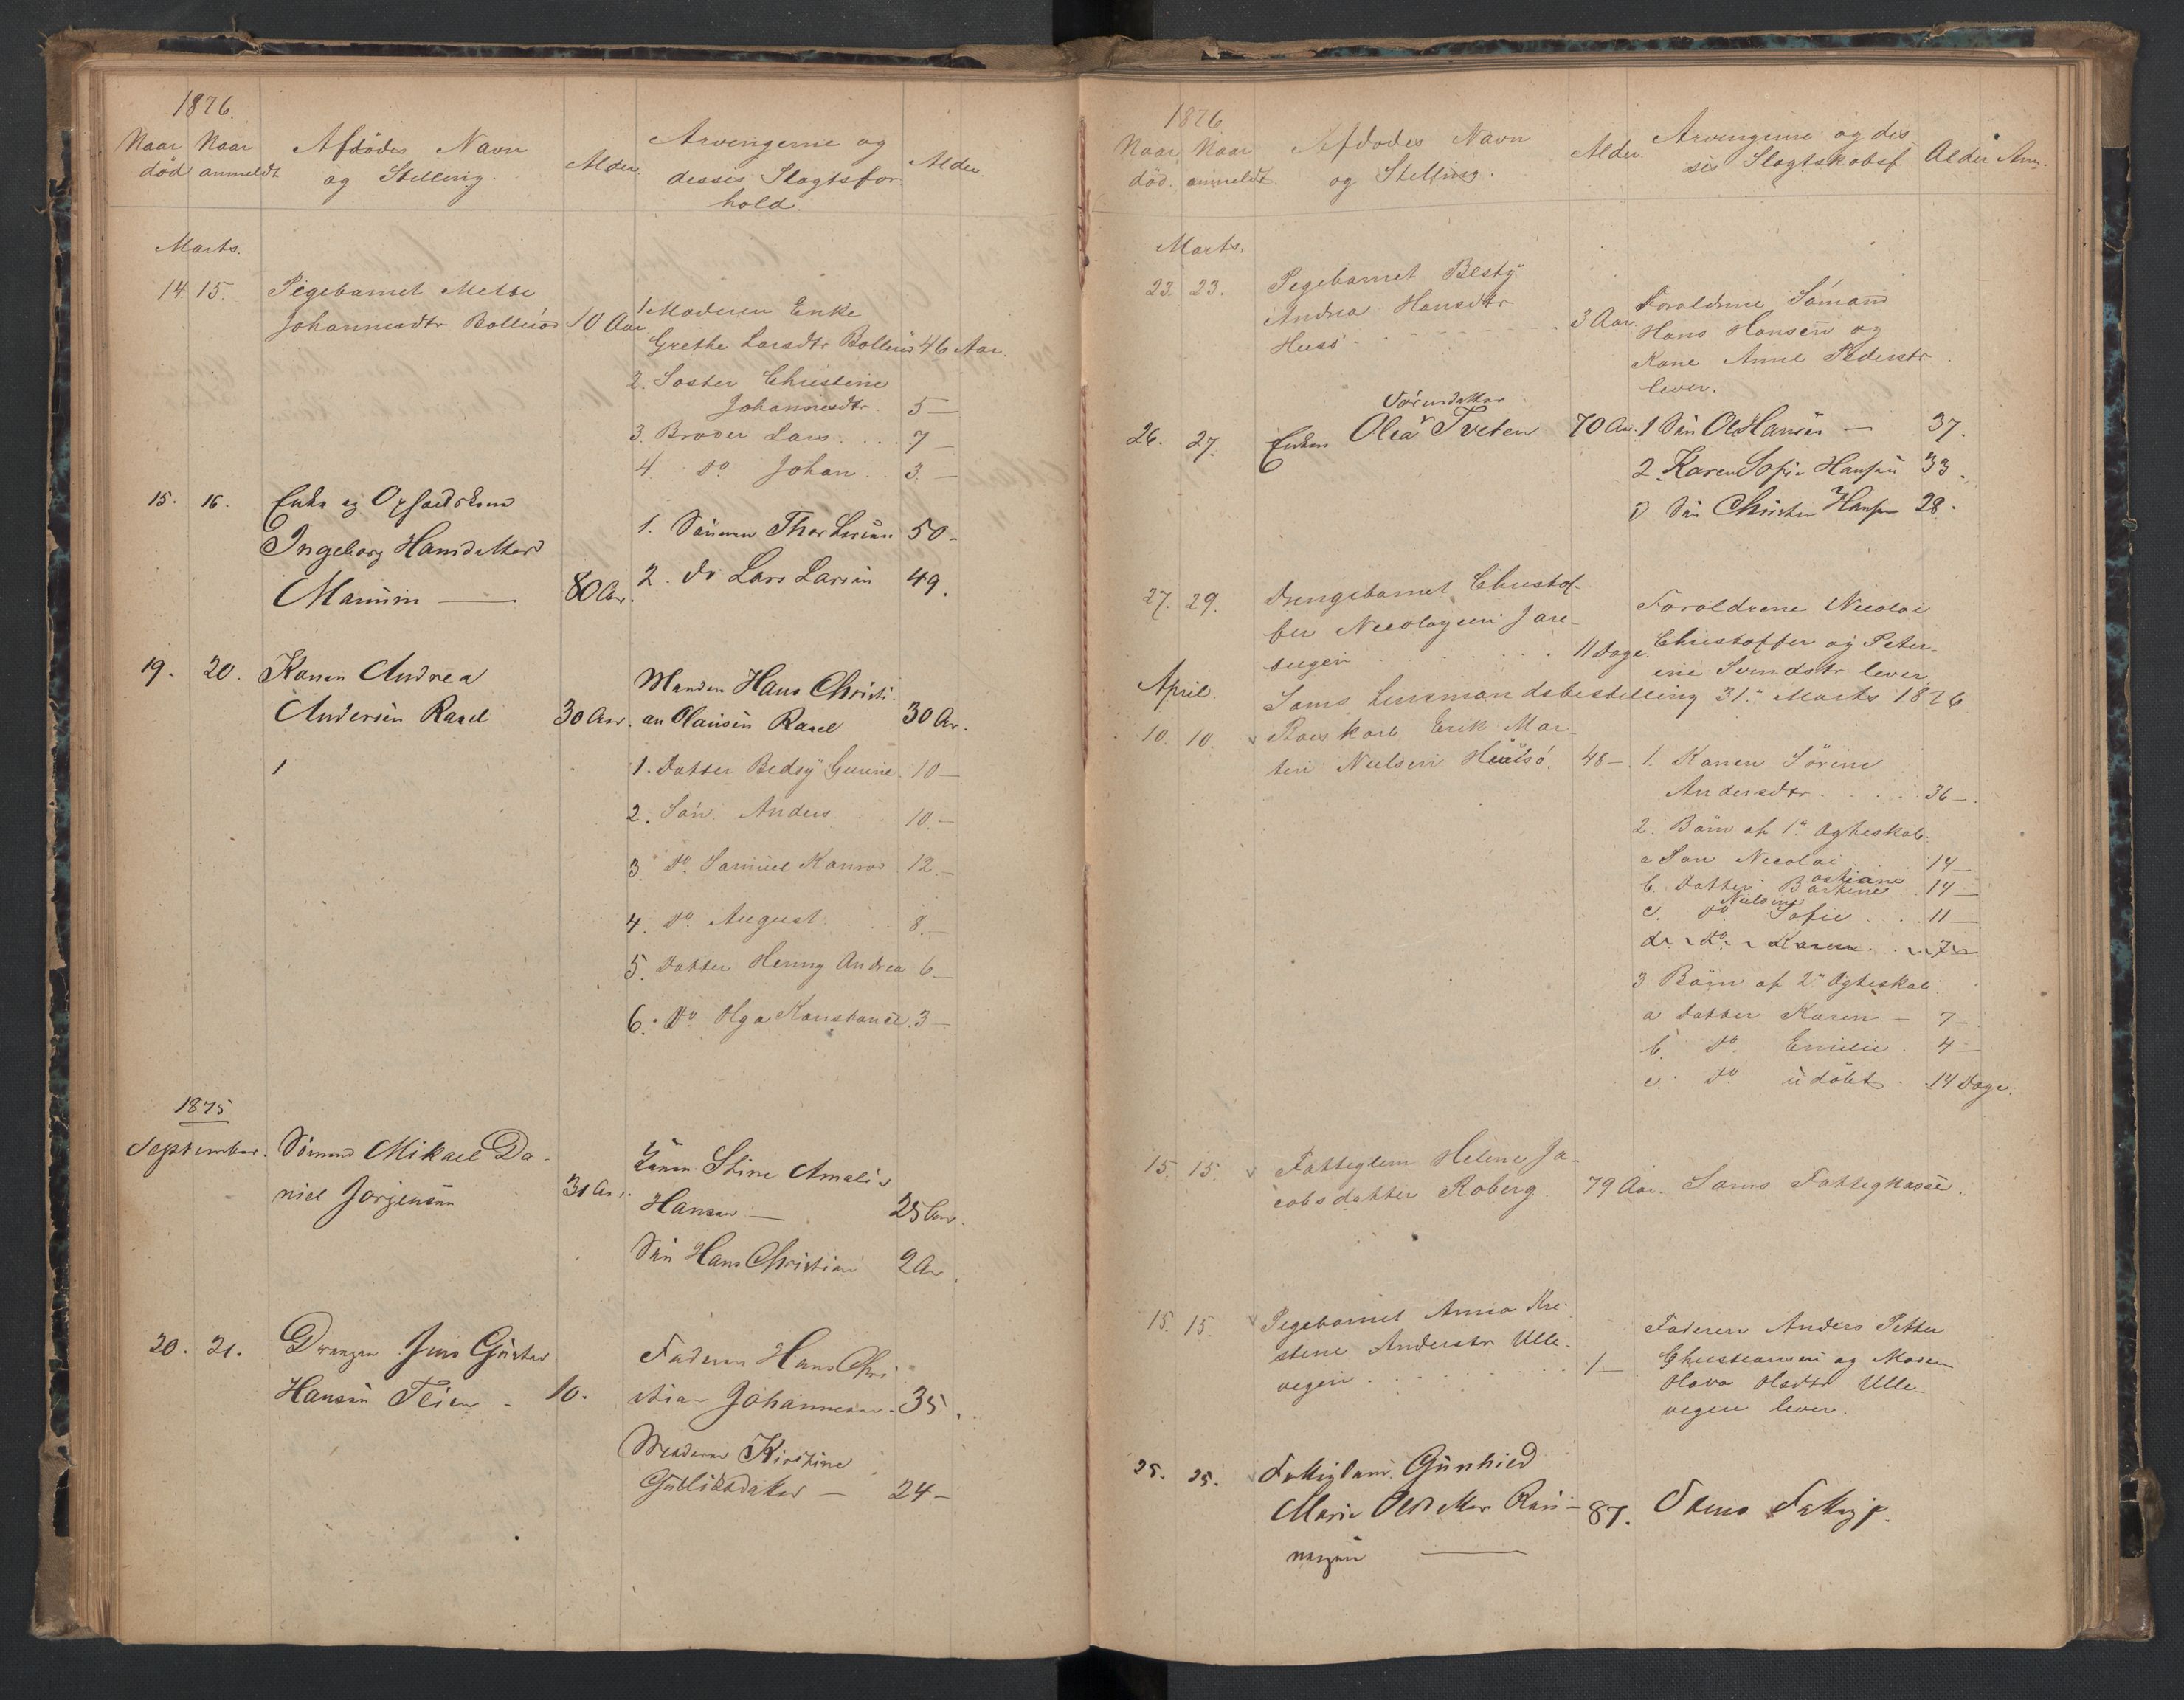 1876.
Naar død
Naar anmeldt
Afdødes Navn og Stilling.
Alder.
Arvingerne og desses Slagtsforhold.
Alder.
Marts.
14. 15. Pigebarnet Mette
Johannesdtr Bollerød 10 Aar
1. Moderen Enke
Grethe Larsdtr Bollerød 46 Aar.
2. Søster Christine
Johannesdtr. 5 —
3. Broder Lars . . . 7 —
4. do Johan . . 3. —
15. 16. Enke og
Ingeborg Hansdatter
80 Aar.
1. Sønnen Thor Larsen 50 -
2. do Lars Larsen 49.
19. 20. Konen Andrea
Andersen Raael 30 Aar.
Manden Hans Christi-
an Olausen Raael 30 Ar.
1. Datter Bedsy Gurine 10 —
2. Søn Anders 10. —
3. do. Samuel Konrad 12. —
4. do. August. . . . 8. —
5. Datter Henny Andrea 6 —
6. do Olga Konstance. 3 —
1875
September. Sømand Mikael Da-
niel Jørgensen 31 Aar.
Konen Stine Amalie
Hansen — 25 Aar.
Søn Hans Christian 2 Ar.
20. 21. Drengen Jens Gustav
Hansen Teien - 10.
Faderen Hans Chri
stian Johannesen. 35.
Moderen Kirstine
Gulliksdatter — 24 —
1876
Naar død.
Naar anmeldt.
Afdødes Navn og Stilling.
Alder
Arvingerne og des
ses Slagtskabsf.
Alder
Anm.
Marts.
23. 23. Pigebarnet Besty
Andrea Hansdtr
Husø 3 Aar.
Foraldrene Sømand
Hans Hansen og
Kone Anne Pederstr
lever.
Sørensdatter
26. 27. Enken Olea Tveten 70 Aar.
1 Søn Ole Hansen — 37.
2. Karen Sofie Hansen 33.
3 Søn Christen Hansen 28.
27. 29. Drengebarnet Christof-
fer Nicolaysen Jare-
bugen . . . 11 Dage.
Foraldrene Nicolai
Christoffer og Peter-
ine Svendstr lever
April. Sems Lensmandsbestilling 31. Marts 1876
10. 10. Roeskarl Erik Mar-
tin Nielsen Husø. 48 —
1. Konen Sørine
Andersdtr . . . . . 36 —.
2. Børn af 1" Ogteskab.
a Søn Nicolai . . 14 —
ostiane
b. Datter Bastine . 14 —
Nielsine
c. do. Sofie . . 11 —
d. do. Karen . . 7
3 Børn af 2" Ogteskab.
a Datter Karen — 7 —
b. do. Emilie . 4 —
c. do udøbt . 14 Dage.
15. 15. Fattiglem Helene Ja-
cobsdatter Roberg. 79 Aar. Sems Fattigkasse.
15. 15. Pigebarnet Anna Kri-
stine Anderstr Ulle-
vegen . . . . 1 —
Faderen Anders Petter
Christiansen og Moder
Olava Olsdtr Ulle-
vegen lever.
25. 25. Fattiglem Gunhild
Marie Olsdatter
— 87. Sems Fattigk.